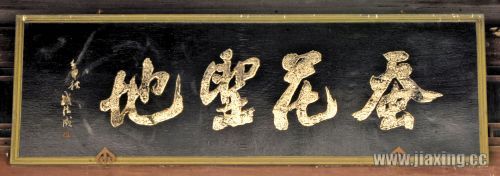 蚕花聖地
www.jiaxing.cc